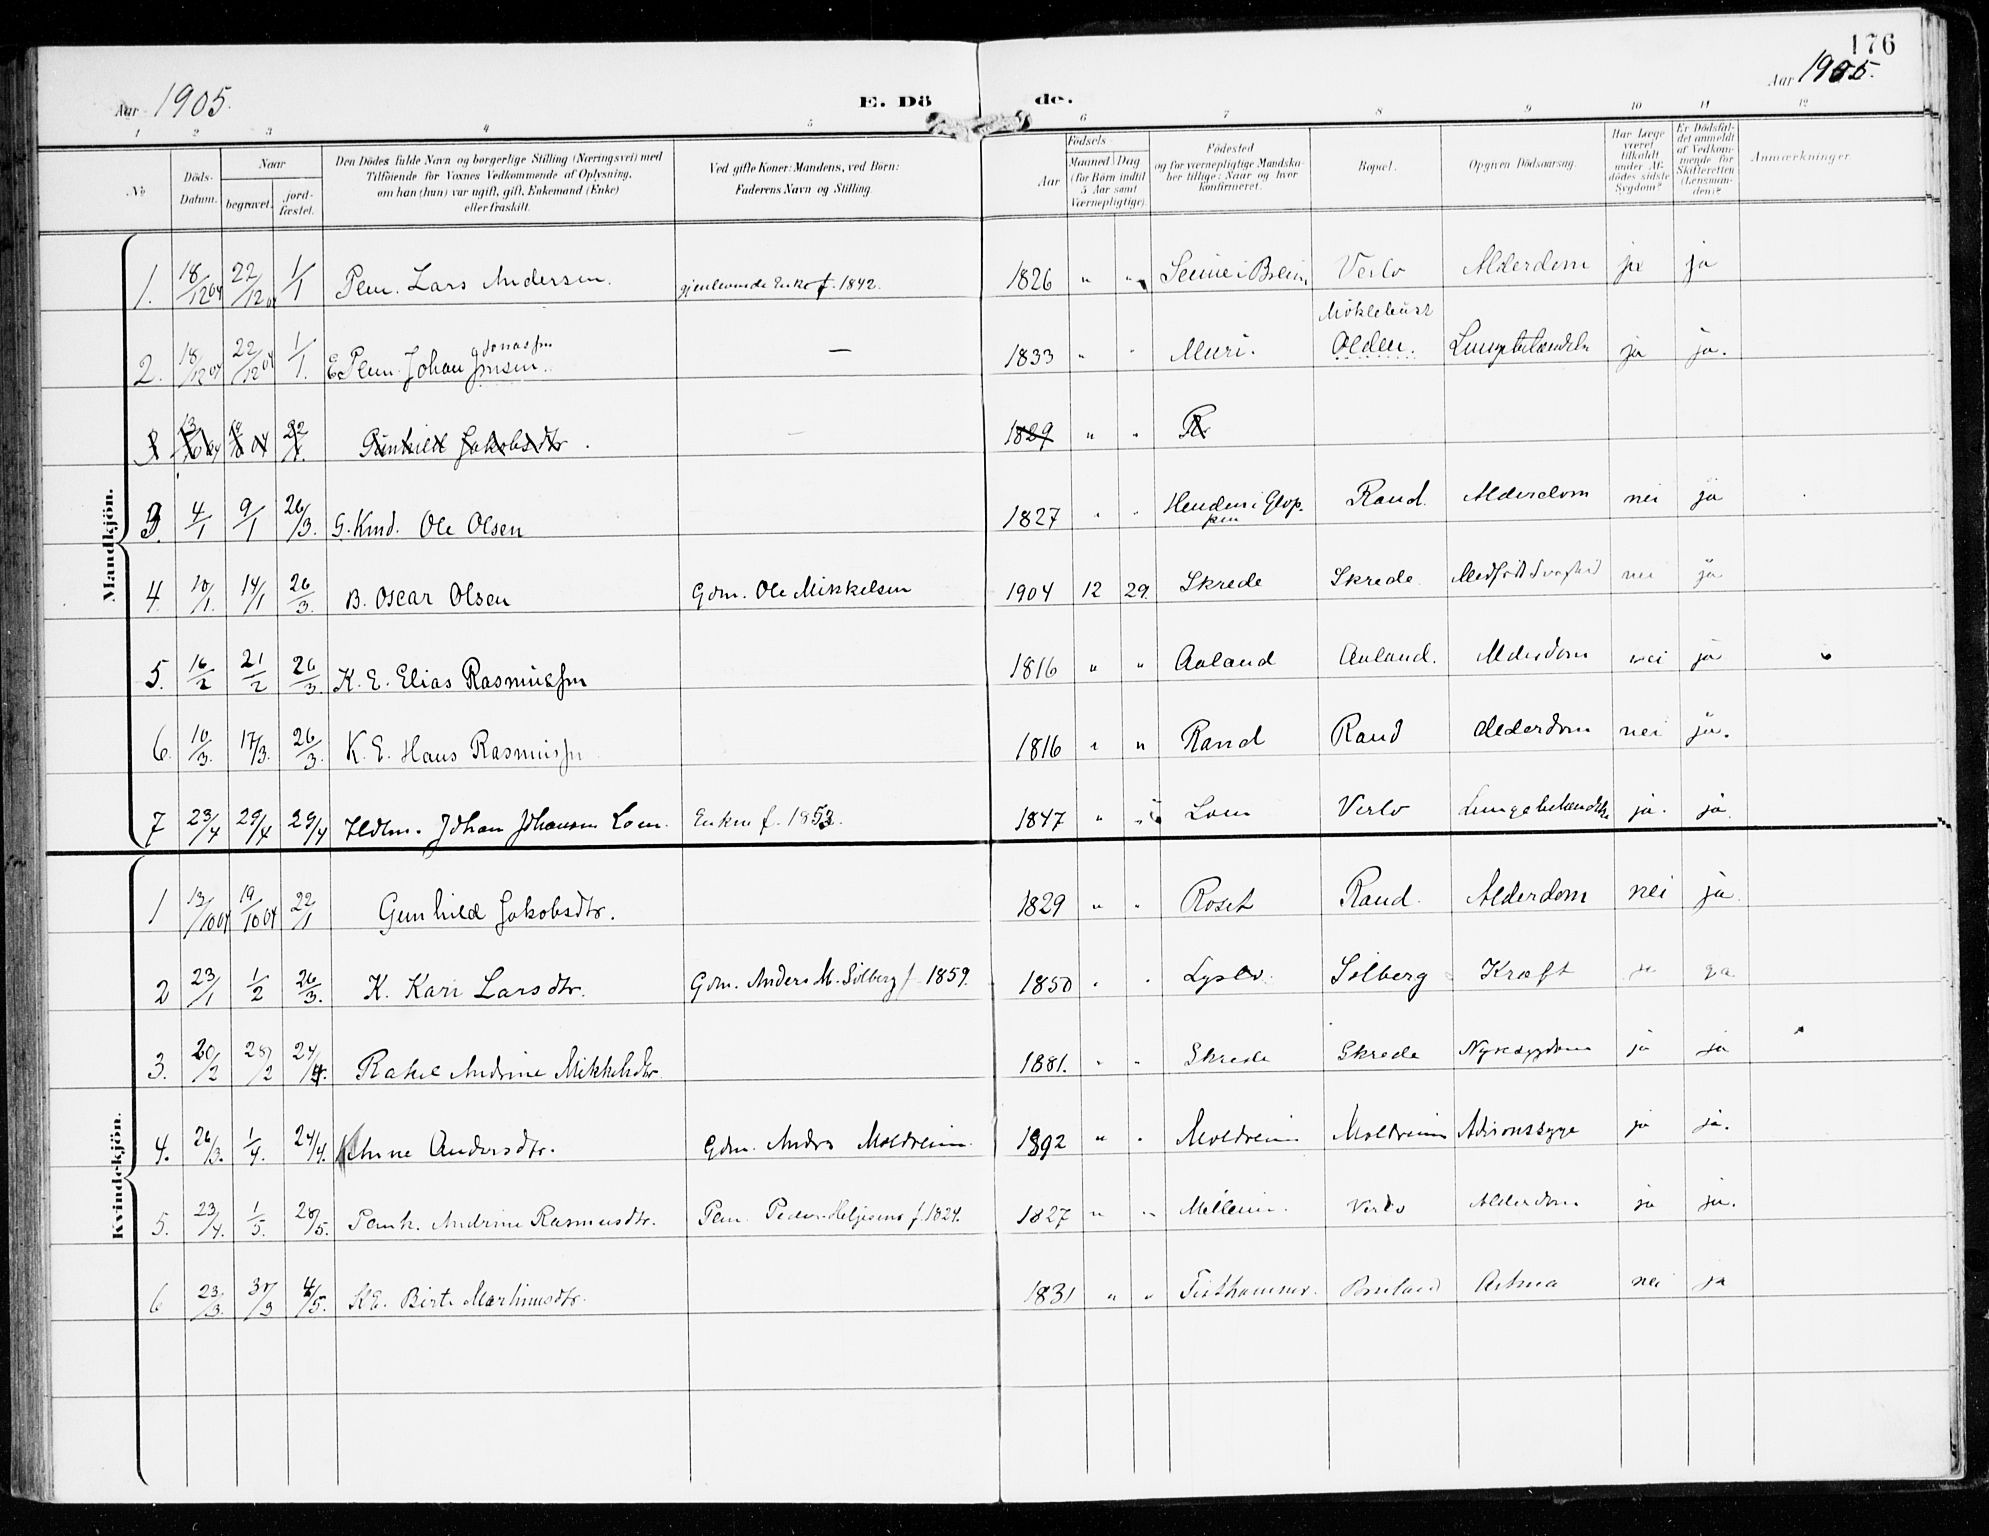 176
Aar 1905.
E. Dö de.
Aar 1905.
1 2 3 4 5 6 7 8 9 10 11 12
No
Döds-Datum.
Naar
begravet.
jord-fæstet.
Den Dödes fulde Navn og borgerlige Stilling (Næringsvei) med
Tilföiende for Voxnes Vedkommende af Oplysning,
om han (hun) var ugift, gift, Enkemand (Enke)
eller fraskilt.
Ved gifte Koner: Mandens, ved Börn:
Faderens Navn og Stilling.
Födsels-
Aar
Maaned Dag
(for Börn indtil
5 Aar samt
Værnepligtige).
Födested
og for værnepligtige Mandska-
ber tillige: Naar og hvor
konfirmeret.
Bopæl.
Opgiven Dödsaarsag.
Har Læge
været
tilkaldt
under Af-
dödes sidste
Sygdom?
Er Dödsfal-
det anmeldt
af Vedkom-
mende for
Skifteretten
(Lensman-
den)?
Anmærkninger.
Mandkjön.
1. 18/12 04 22/12 04 1/1 Pem. Lars Andersen. gjenlevende Enke f. 1842. 1826 " " Verlo Alderdom ja ja
2. 18/12 04 22/12 04 1/1 Johan Jonassen Jensen. — 1833 " " Muri. Möklebust Olden. Lungebetændelse ja ja.
3 13/10 04 19/10 04 22/1 Gunhild Jakobsdtr. 1829 " " R
3. 4/1 9/1 26/3. G. Kmd. Ole Olsen 1827 " " Henden i Gloppen Rand. Alderdom nei ja
4. 10/1. 14/1 26/3. B. Oscar Olsen Gdm. Ole Mikkelsen 1904 12 29. Skrede Skrede. Medfödt Svaghed nei ja
5. 16/2 21/2 26/3. K. E. Elias Rasmussen 1816 " " Aaland Aaland. Alderdom nei ja
6. 10/3. 17/3. 26/3. K. E. Hans Rasmussen 1816 " " Rand Rand Alderdom nei ja.
7 23/4 29/4 29/4 Hdlm. Johan Johansen Lom. Enkm f. 1853. 1847 " " Lom Verlo Lungebetændelse ja. ja.
Kvindekjön.
1 13/10 04 19/10 04 22/1 Gunhild Jakobsdtr. 1829 " " Roset Rand. Alderdom nei ja
2 23/1 1/2 26/3. K. Kari Larsdtr. Gdm. Anders M. Solberg f. 1859. 1850 " " Solberg Kræft ja ja
3. 20/2 28/2 24/4. Rakel Andrine Mikkelsdtr. 1881. " " Skrede Skrede Nyresygdom ja ja
4. 26/3. 1/4. 24/4. Andersdtr. Gdm. Anders Moldreim. 1892 " " Moldreim Moldreim ja ja.
5. 23/4. 1/5. 28/5. Andrine Rasmusdtr. Pem. Peder Helgesens f. 1824. 1827 " " Verlo Alderdom ja ja.
6 23/3. 30/3 4/5. KE. Birte Martinusdtr. 1831 " " Tisthammer. Astma nei ja